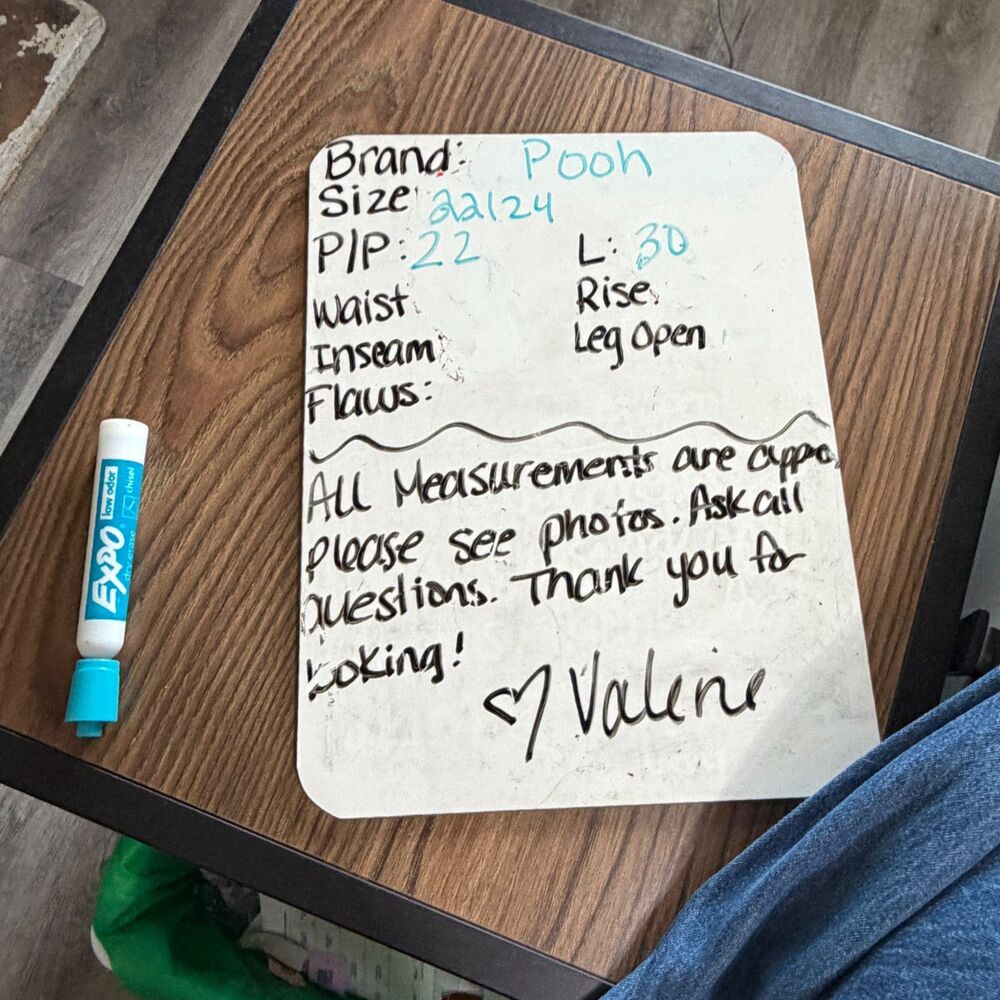 Brand: Pooh
Size 22/24
P/P: 22 L: 30
Waist Rise
Inseam Leg Open
Flaws:
All Measurements are appo
please see photos. Ask all
questions. Thank you for
looking!
♡ Valerie
EXPO
low odor
chisel
dry erase